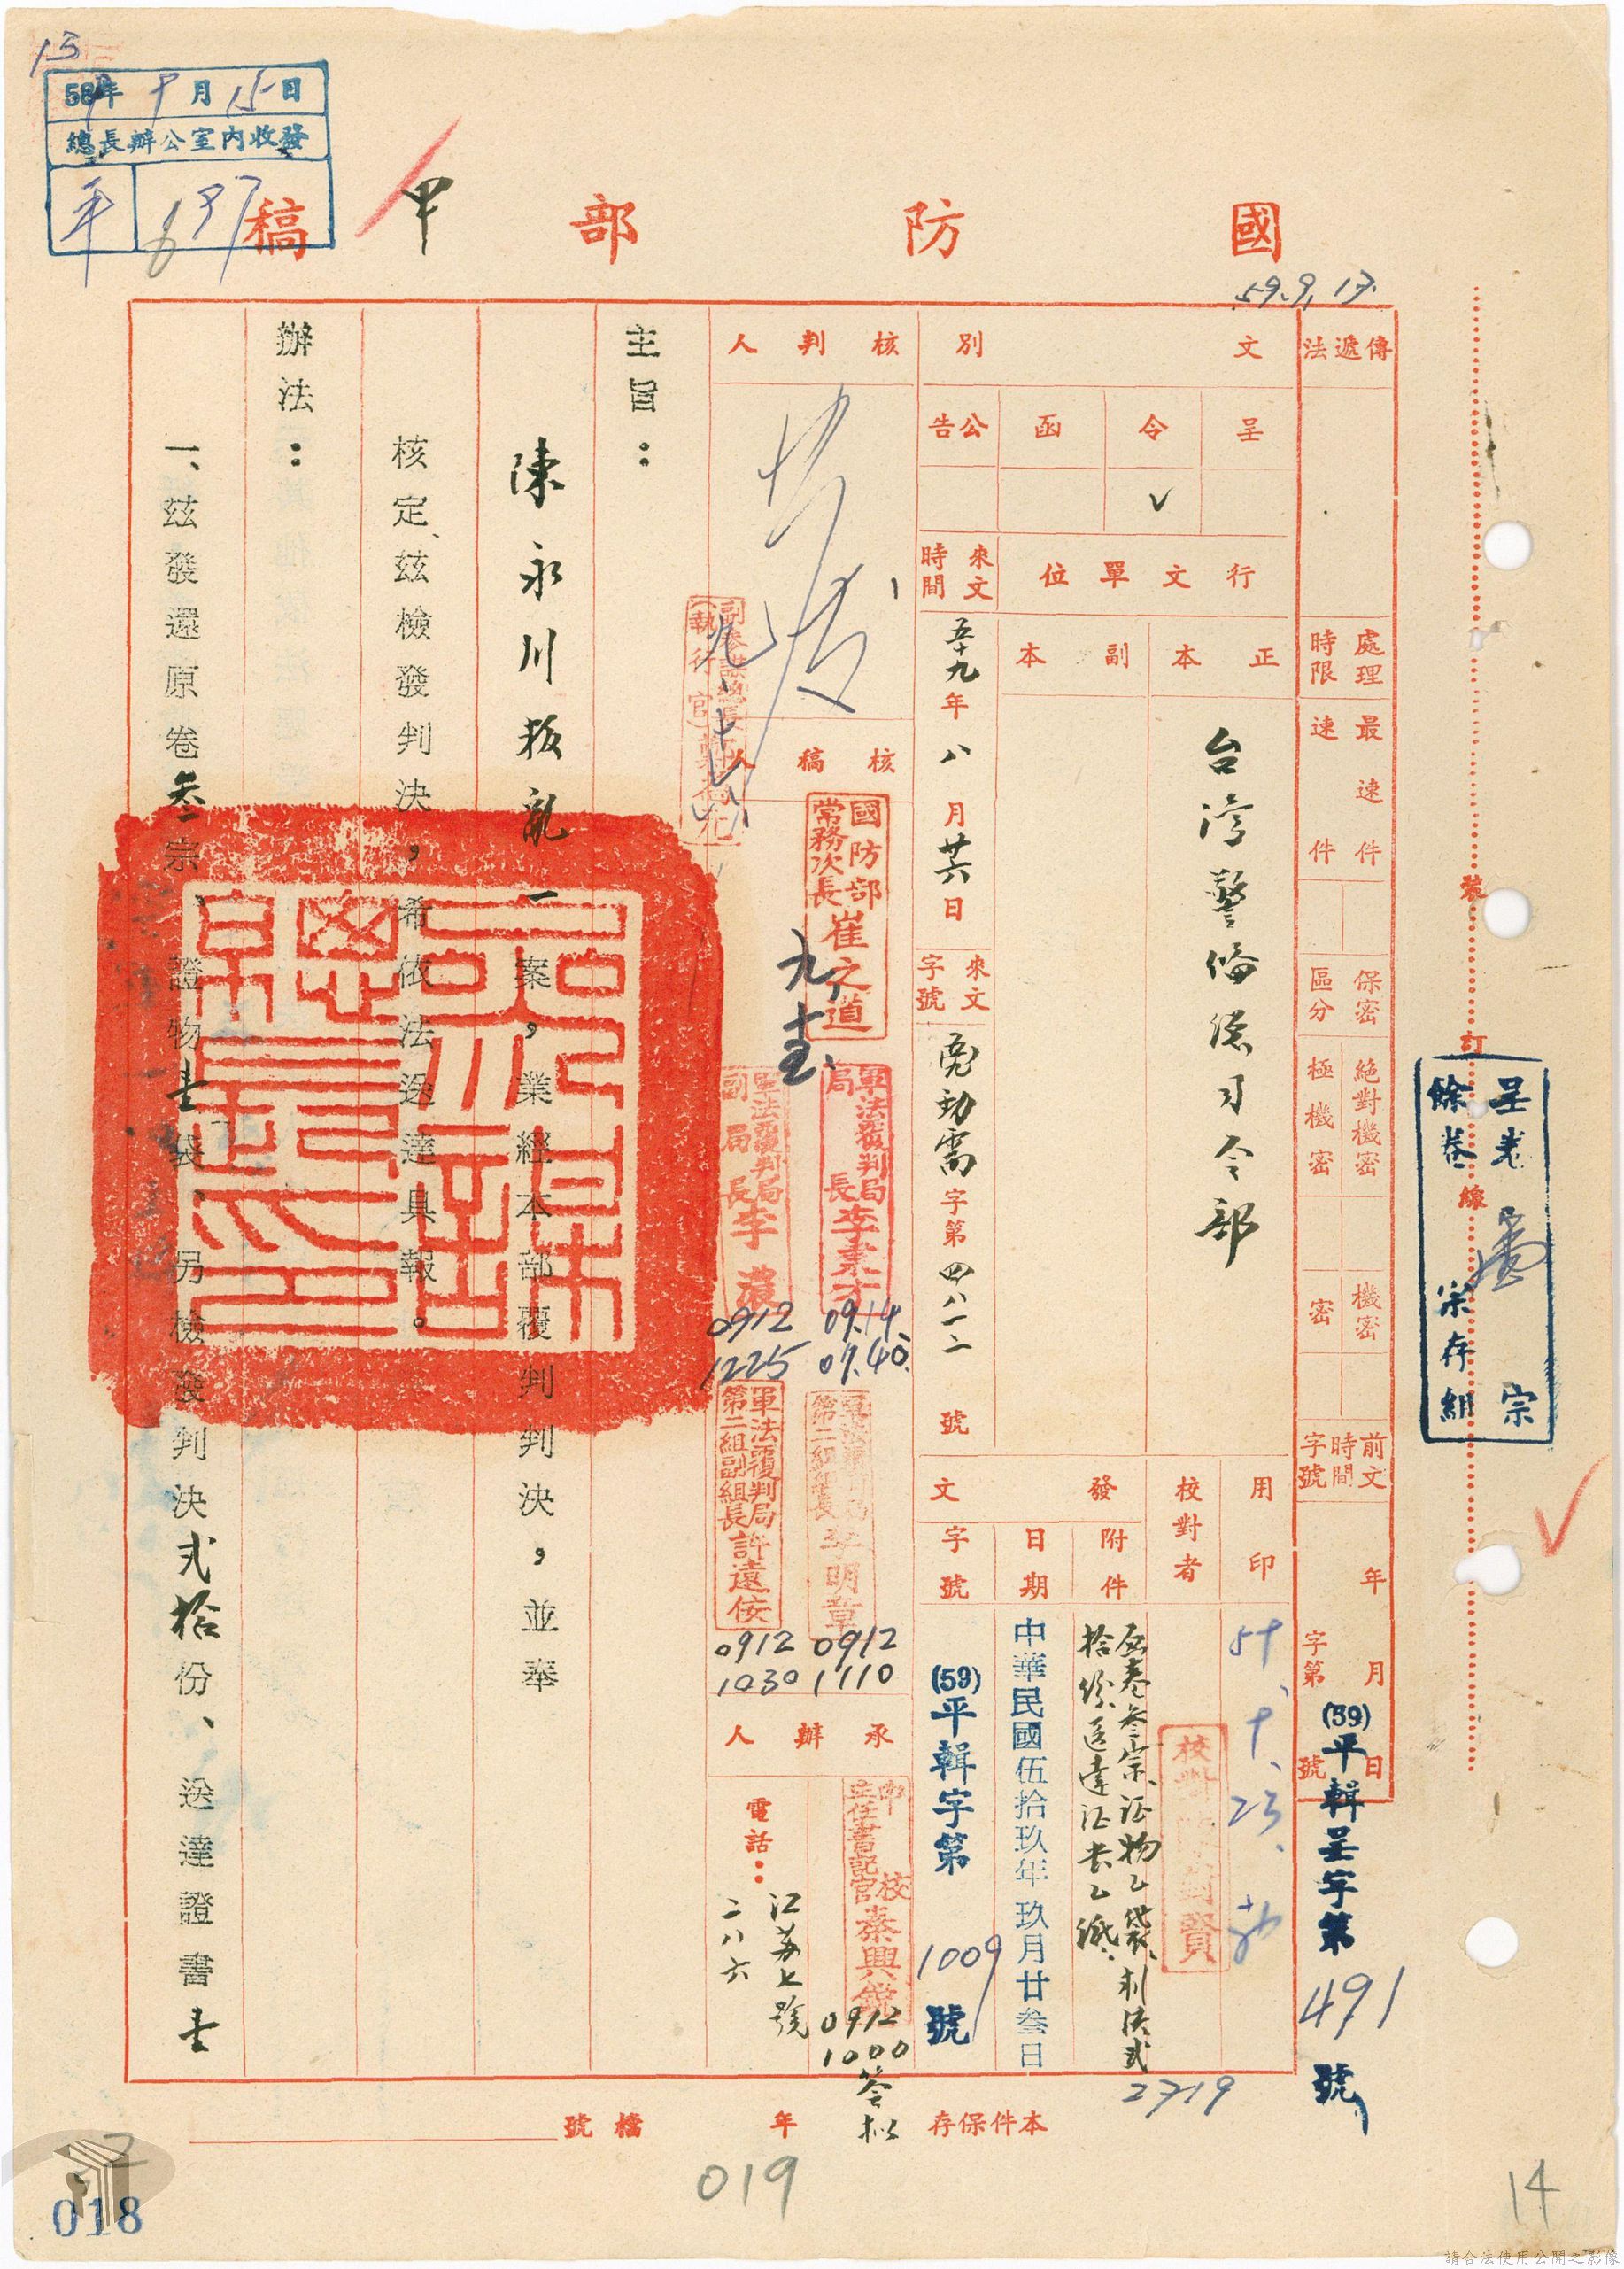 國防部稿
甲
58年9月15日
總長辦公室內收發
平
637
59.9.17.
傳遞法
處理時限
最速件
速件
保密區分
絕對機密
極機密
機密
密
前文時間字號
年月日
字第號
(59)平輯呈字第491號
文別
呈
令
函
公告
✓
行文單位
正本
副本
台灣警備總司令部
來文時間
五十九年八月廿六日
來文字號
字第四八一二號
用印
校對者
發文
附件
日期
字號
原卷叁宗、証物乙袋、判決弍
拾份送達証書乙紙
中華民國伍拾玖年玖月廿叁日
(59)平輯字第1009號
核判人
副參謀總長
(執行官)
核稿人
國防部常務次長崔之道
軍法覆判局局長李
09.14.
07.40.
軍法覆判局副局長李
0912
1225
軍法覆判局第二組組長李明章
0912
1110
軍法覆判局第二組副組長許遠侒
0912
1030
承辦人
中校主任書記官秦興銳
0912
1000
簽拟
電話：
江蘇七號
二八六
主旨：
陳永川叛亂一案，業經本部覆判判決，並奉
核定、茲檢發判決，希依法送達具報。
辦法：
一、茲發還原卷叁宗、證物壹袋、另檢發判決弍拾份、送達證書壹
裝訂線
呈卷宗
餘卷宗存組
本件保存年
檔號
2719
019
018
14
請合法使用公開之影像